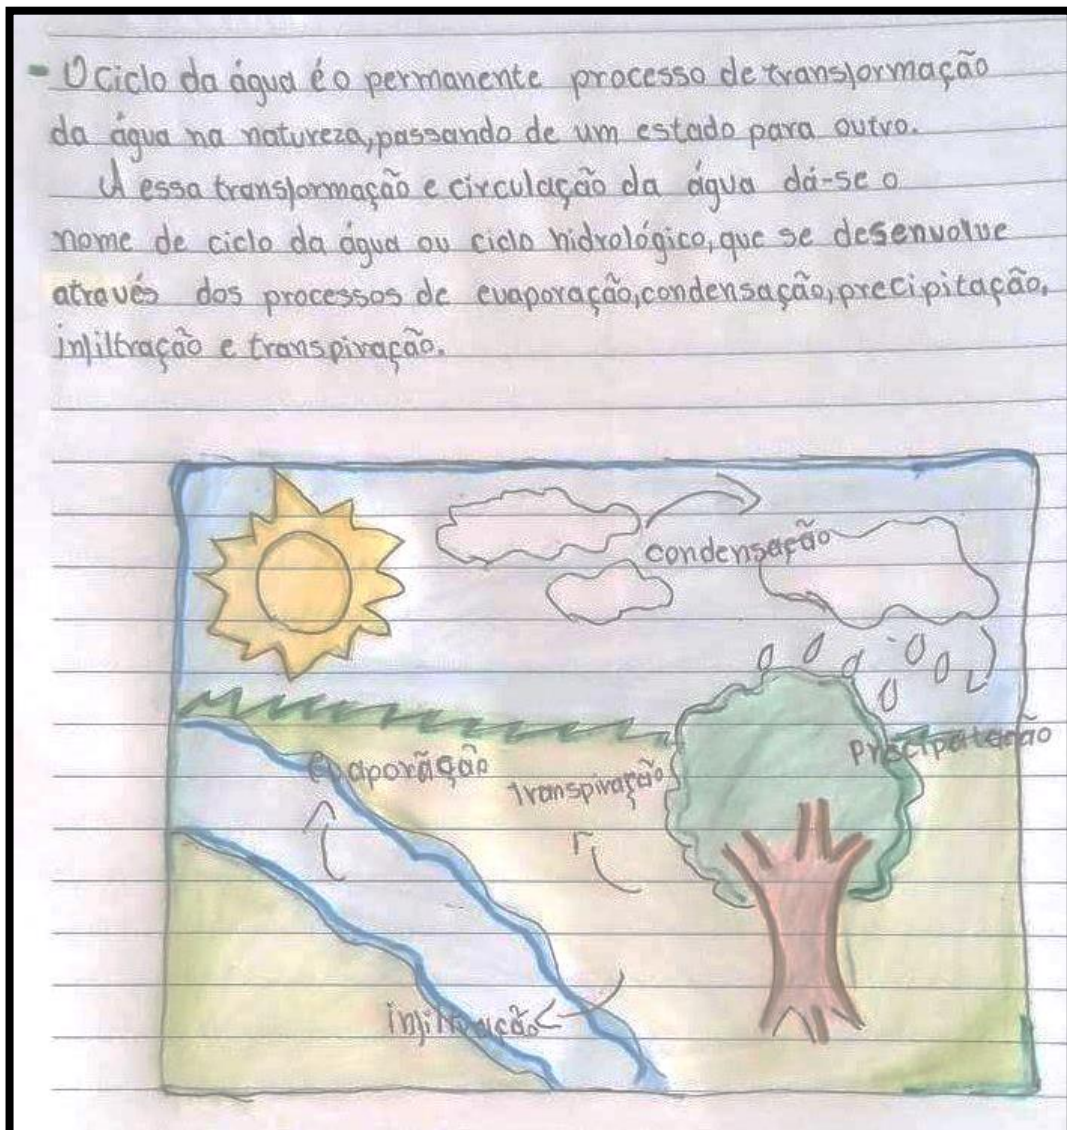 - O ciclo da água é o permanente processo de transformação
da água na natureza, passando de um estado para outro.
A essa transformação e circulação da água dá-se o
nome de ciclo da água ou ciclo hidrológico, que se desenvolve
através dos processos de evaporação, condensação, precipitação,
infiltração e transpiração.
condensação
Precipatação
evaporãção
transpiração
infiltração